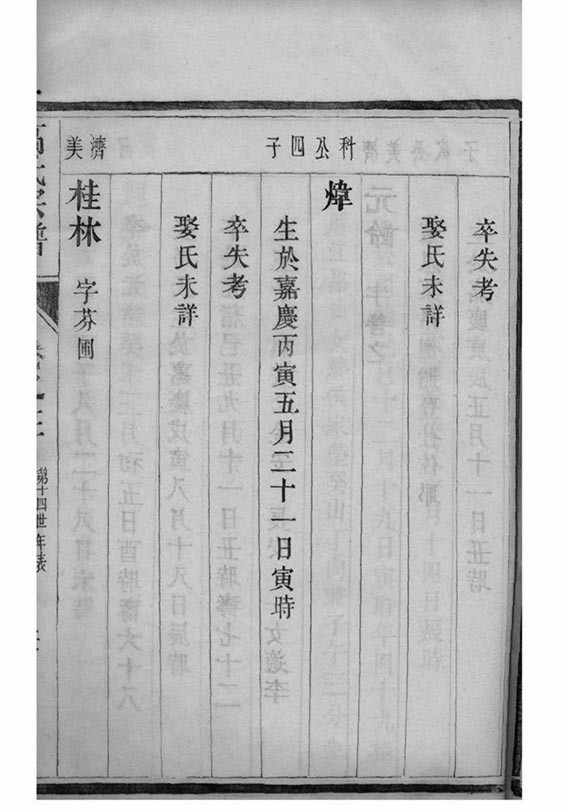 卒失考
娶氏未詳
科公四子
煒
生於嘉慶丙寅五月二十一日寅時
卒失考
娶氏未詳
濟美
桂林 字芬圃
第十四世年表